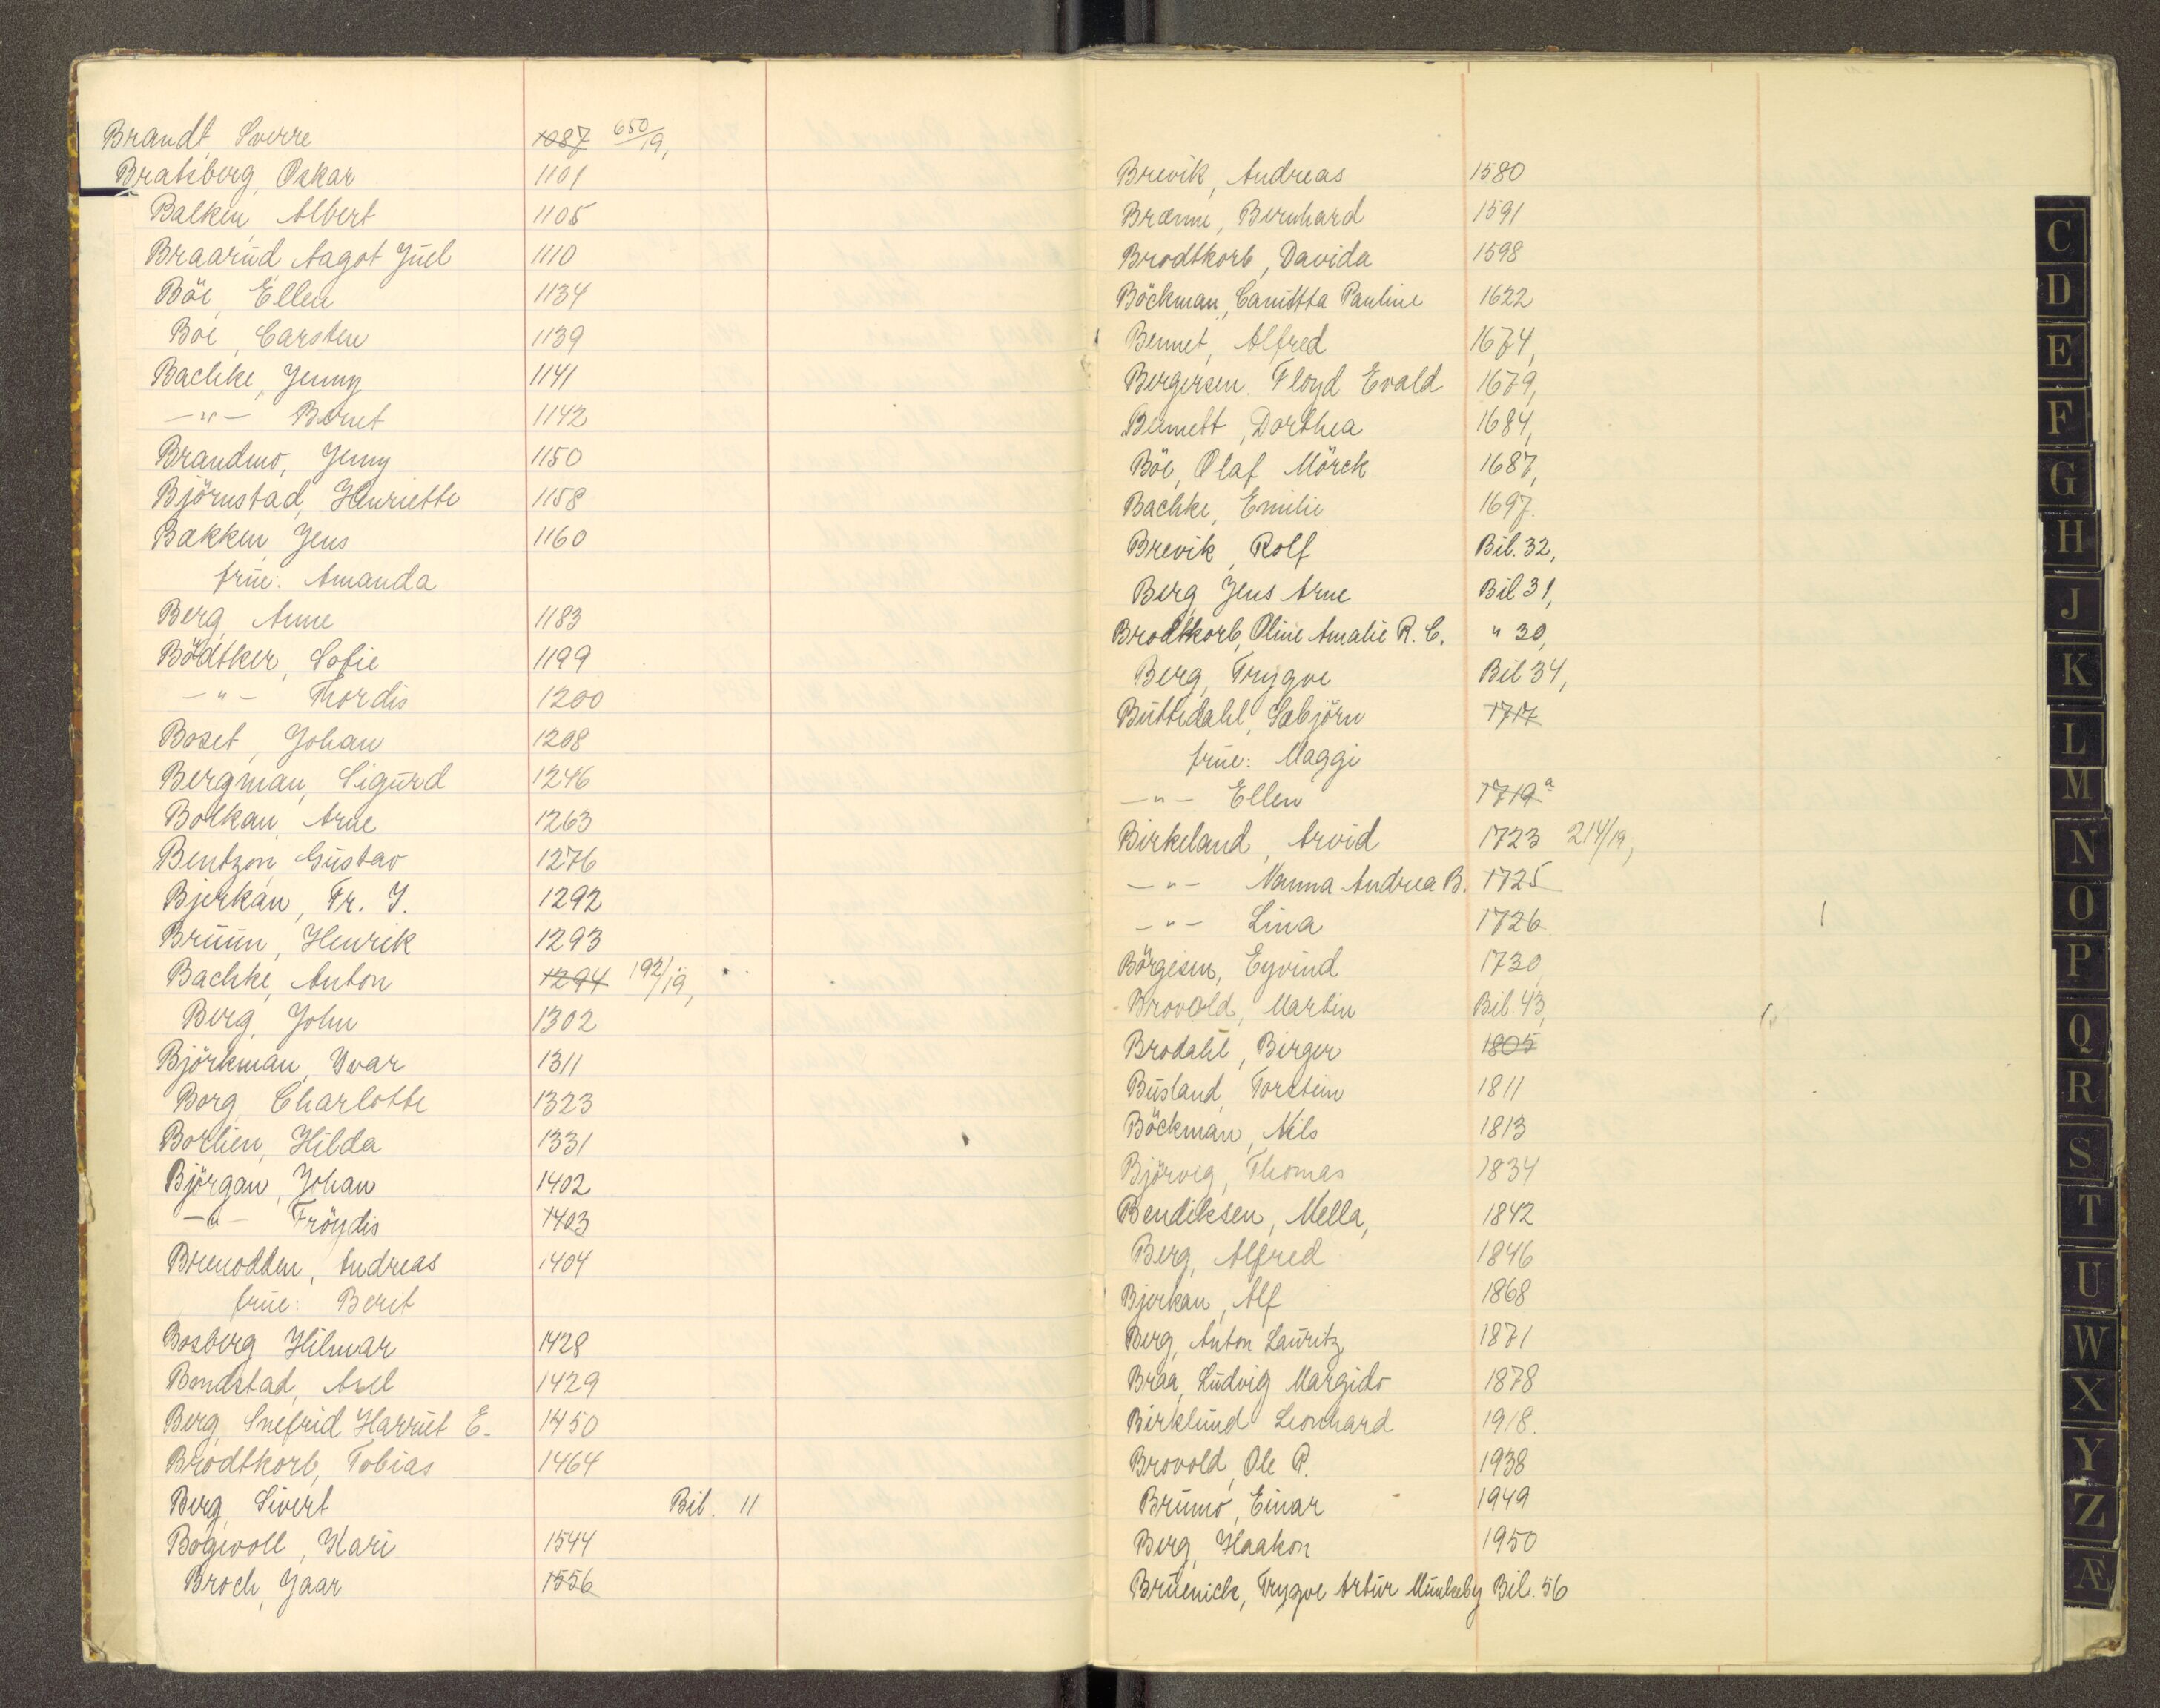 Brandt, Sverre 1087 650/19,
Bratsberg, Oskar 1101
Balken, Albert 1105
Braarud Aagot Juel 1110
Böe, Ellen 1134
Boe, Carsten 1139
Bachke, Jenny 1141
—"— Bernt 1142
Brandmo, Jenny 1150
Björnstad, Henriette 1158
Bakken, Jens 1160
frue: Amanda
Berg, Anne 1183
Bödtker, Sofie 1199
—"— Thordis 1200
Boset, Johan 1208
Bergman, Sigurd 1246
Bolkan, Arne 1263
Bentzon, Gustav 1276
Bjerkan, Fr. J. 1292
Bruun, Henrik 1293
Bachke, Anton 1294 192/19,
Berg, John 1302
Björkman, Ivar 1311
Borg, Charlotte 1323
Borlien, Hilda 1331
Björgan, Johan 1402
—"— Fröydis 1403
Brenodden, Andreas 1404
frue: Berit
Bosberg Hilmar 1428
Bondstad, Axel 1429
Berg, Snefrid Harriet E. 1450
Brodtkorb, Tobias 1464
Berg, Sivert Bil. 11
Bogevoll, Kari 1544
Broch, Jaar 1556
Brevik, Andreas 1580
Brænne, Bernhard 1591
Brodtkorb, Davida 1598
Böckman, Pauline 1622
Bennet, Alfred 1674,
Bergersen. Floyd Evald 1679,
Bennett, Dorthea 1684,
Böe, Olaf Mörck 1687,
Bachke, Emilie 1697.
Brevik, Rolf Bil. 32,
Berg, Jens Arne Bil 31,
Brodtkorb, Oline Amalie R. C. " 30,
Berg, Trygve Bil 34,
Buttedahl, Sæbjörn 1717
frue: Maggi
—"— Ellen 1719 a
Birkeland, Arvid 1723 214/19,
—"— Nanna Andrea B. 1725
—"— Lina 1726
Börgesen, Eyvind 1730,
Brovold, Martin Bil. 43,
Brodahl, Birger 1805
Busland, Torstein 1811
Böckman, Nils 1813
Björvig, Thomas 1834
Bendiksen, Mella, 1842
Berg, Alfred 1846
Bjerkan, Alf 1868
Berg, Anton Lauritz 1871
Braa, Ludvig Margido 1878
Birklund Leonhard 1918.
Brovold, Ole P. 1938
Brumo, Einar 1949
Berg, Haakon 1950
Bruenick, Trygve Artur Munkeby Bil. 56
C
D
E
F
G
H
J
K
L
M
N
O
P
Q
R
S
T
U
W
X
Y
Z
Æ